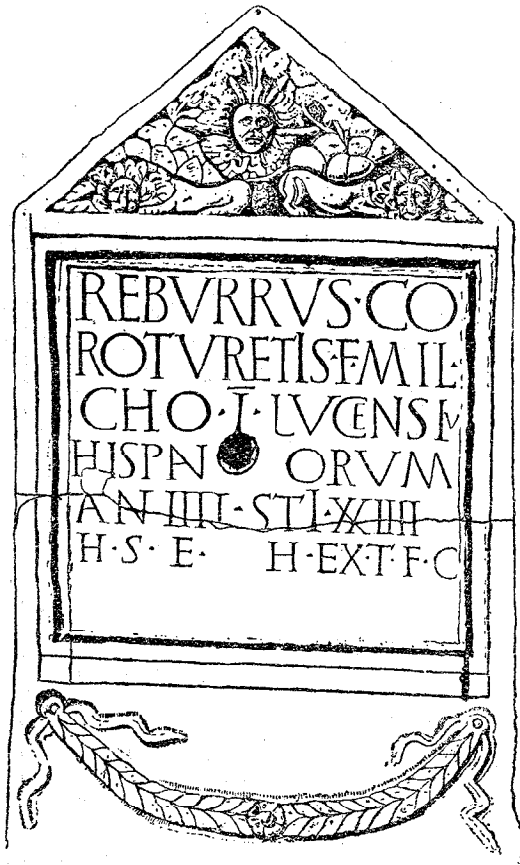 REBVRRVS·CO
ROTVRETIS·F·MIL·
CHO·I·LVCENSIV
HISPAN ORVM
AN IIII·STI·XXIIII
H·S·E· H·EX·T·F·C